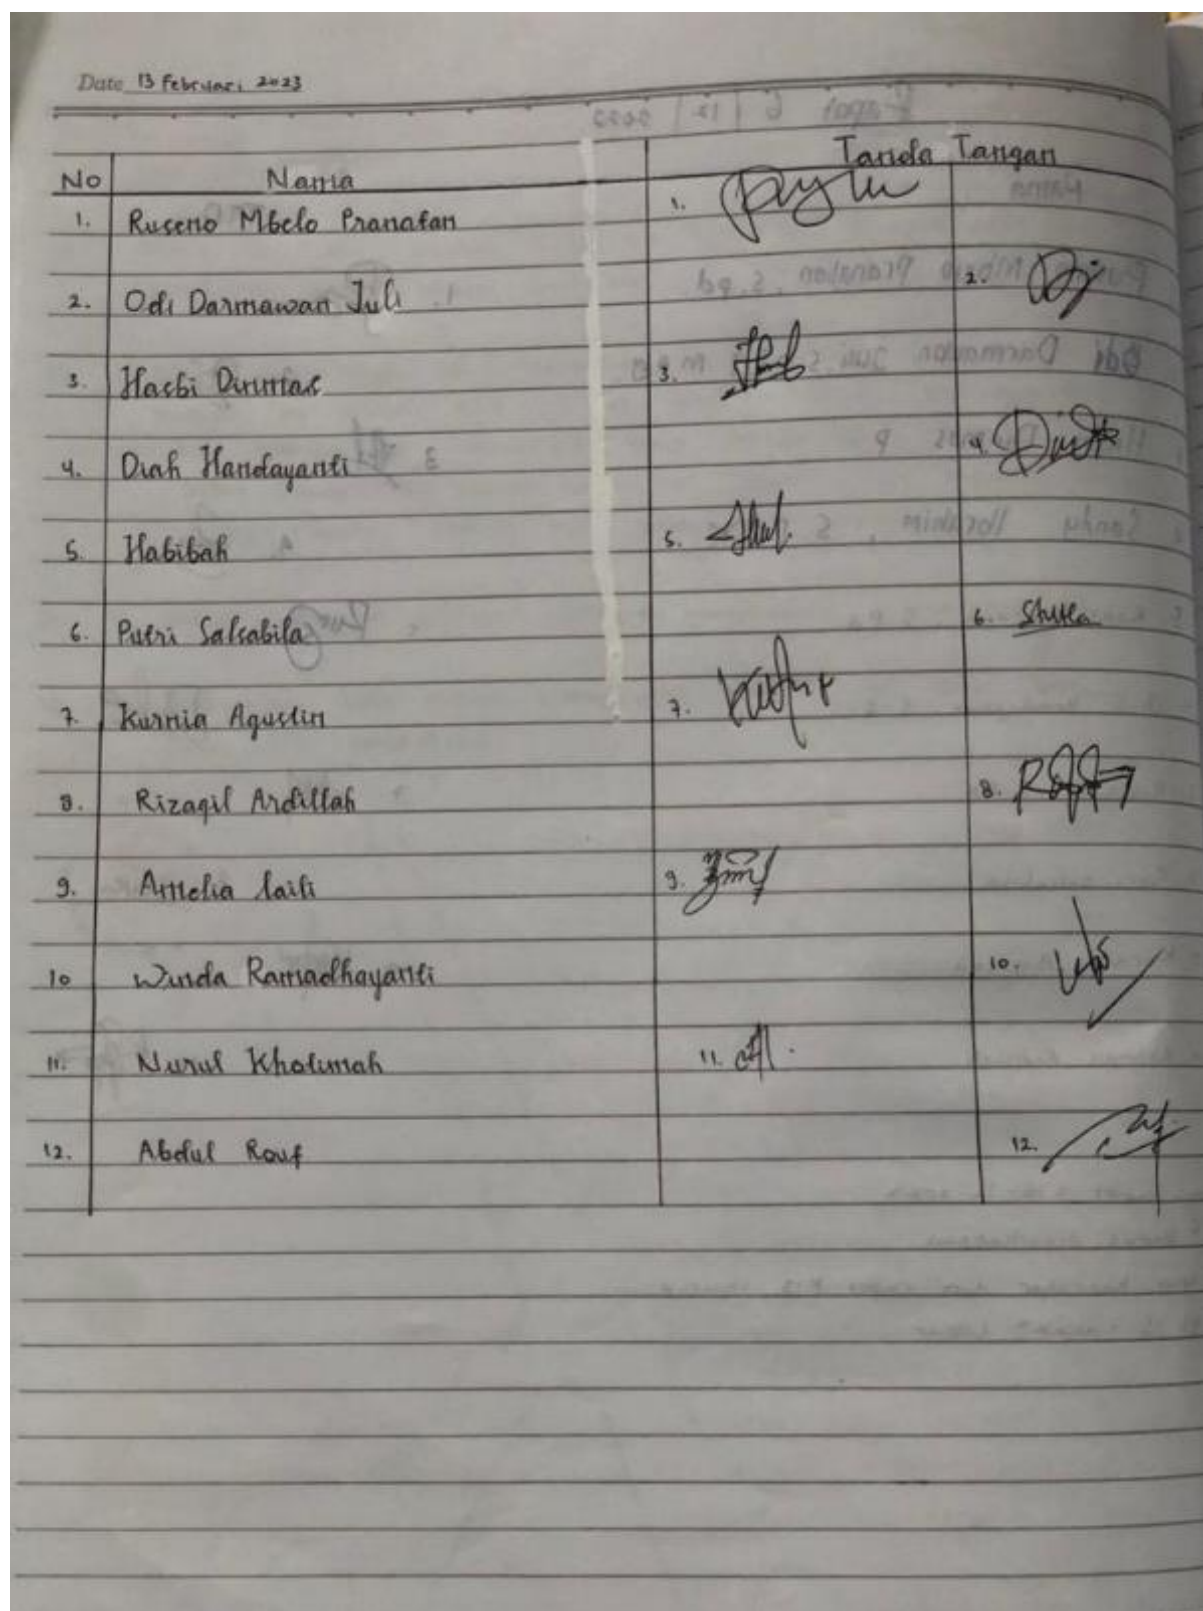 Date 13 Februari 2023
No Nama Tanda Tangan
1. Ruseno Mbelo Pranatan 1.
2. Odi Darmawan Juli 2.
3. Hasbi Dinimas 3.
4. Diah Handayanti 4.
5. Habibah 5.
6. Putri Salsabila 6.
7. Kurnia Agustin 7.
8. Rizaqil Ardillah 8.
9. Amelia Laili 9.
10 Winda Ramadhayanti 10.
11. Nurul Khotimah 11.
12. Abdul Rouf 12.